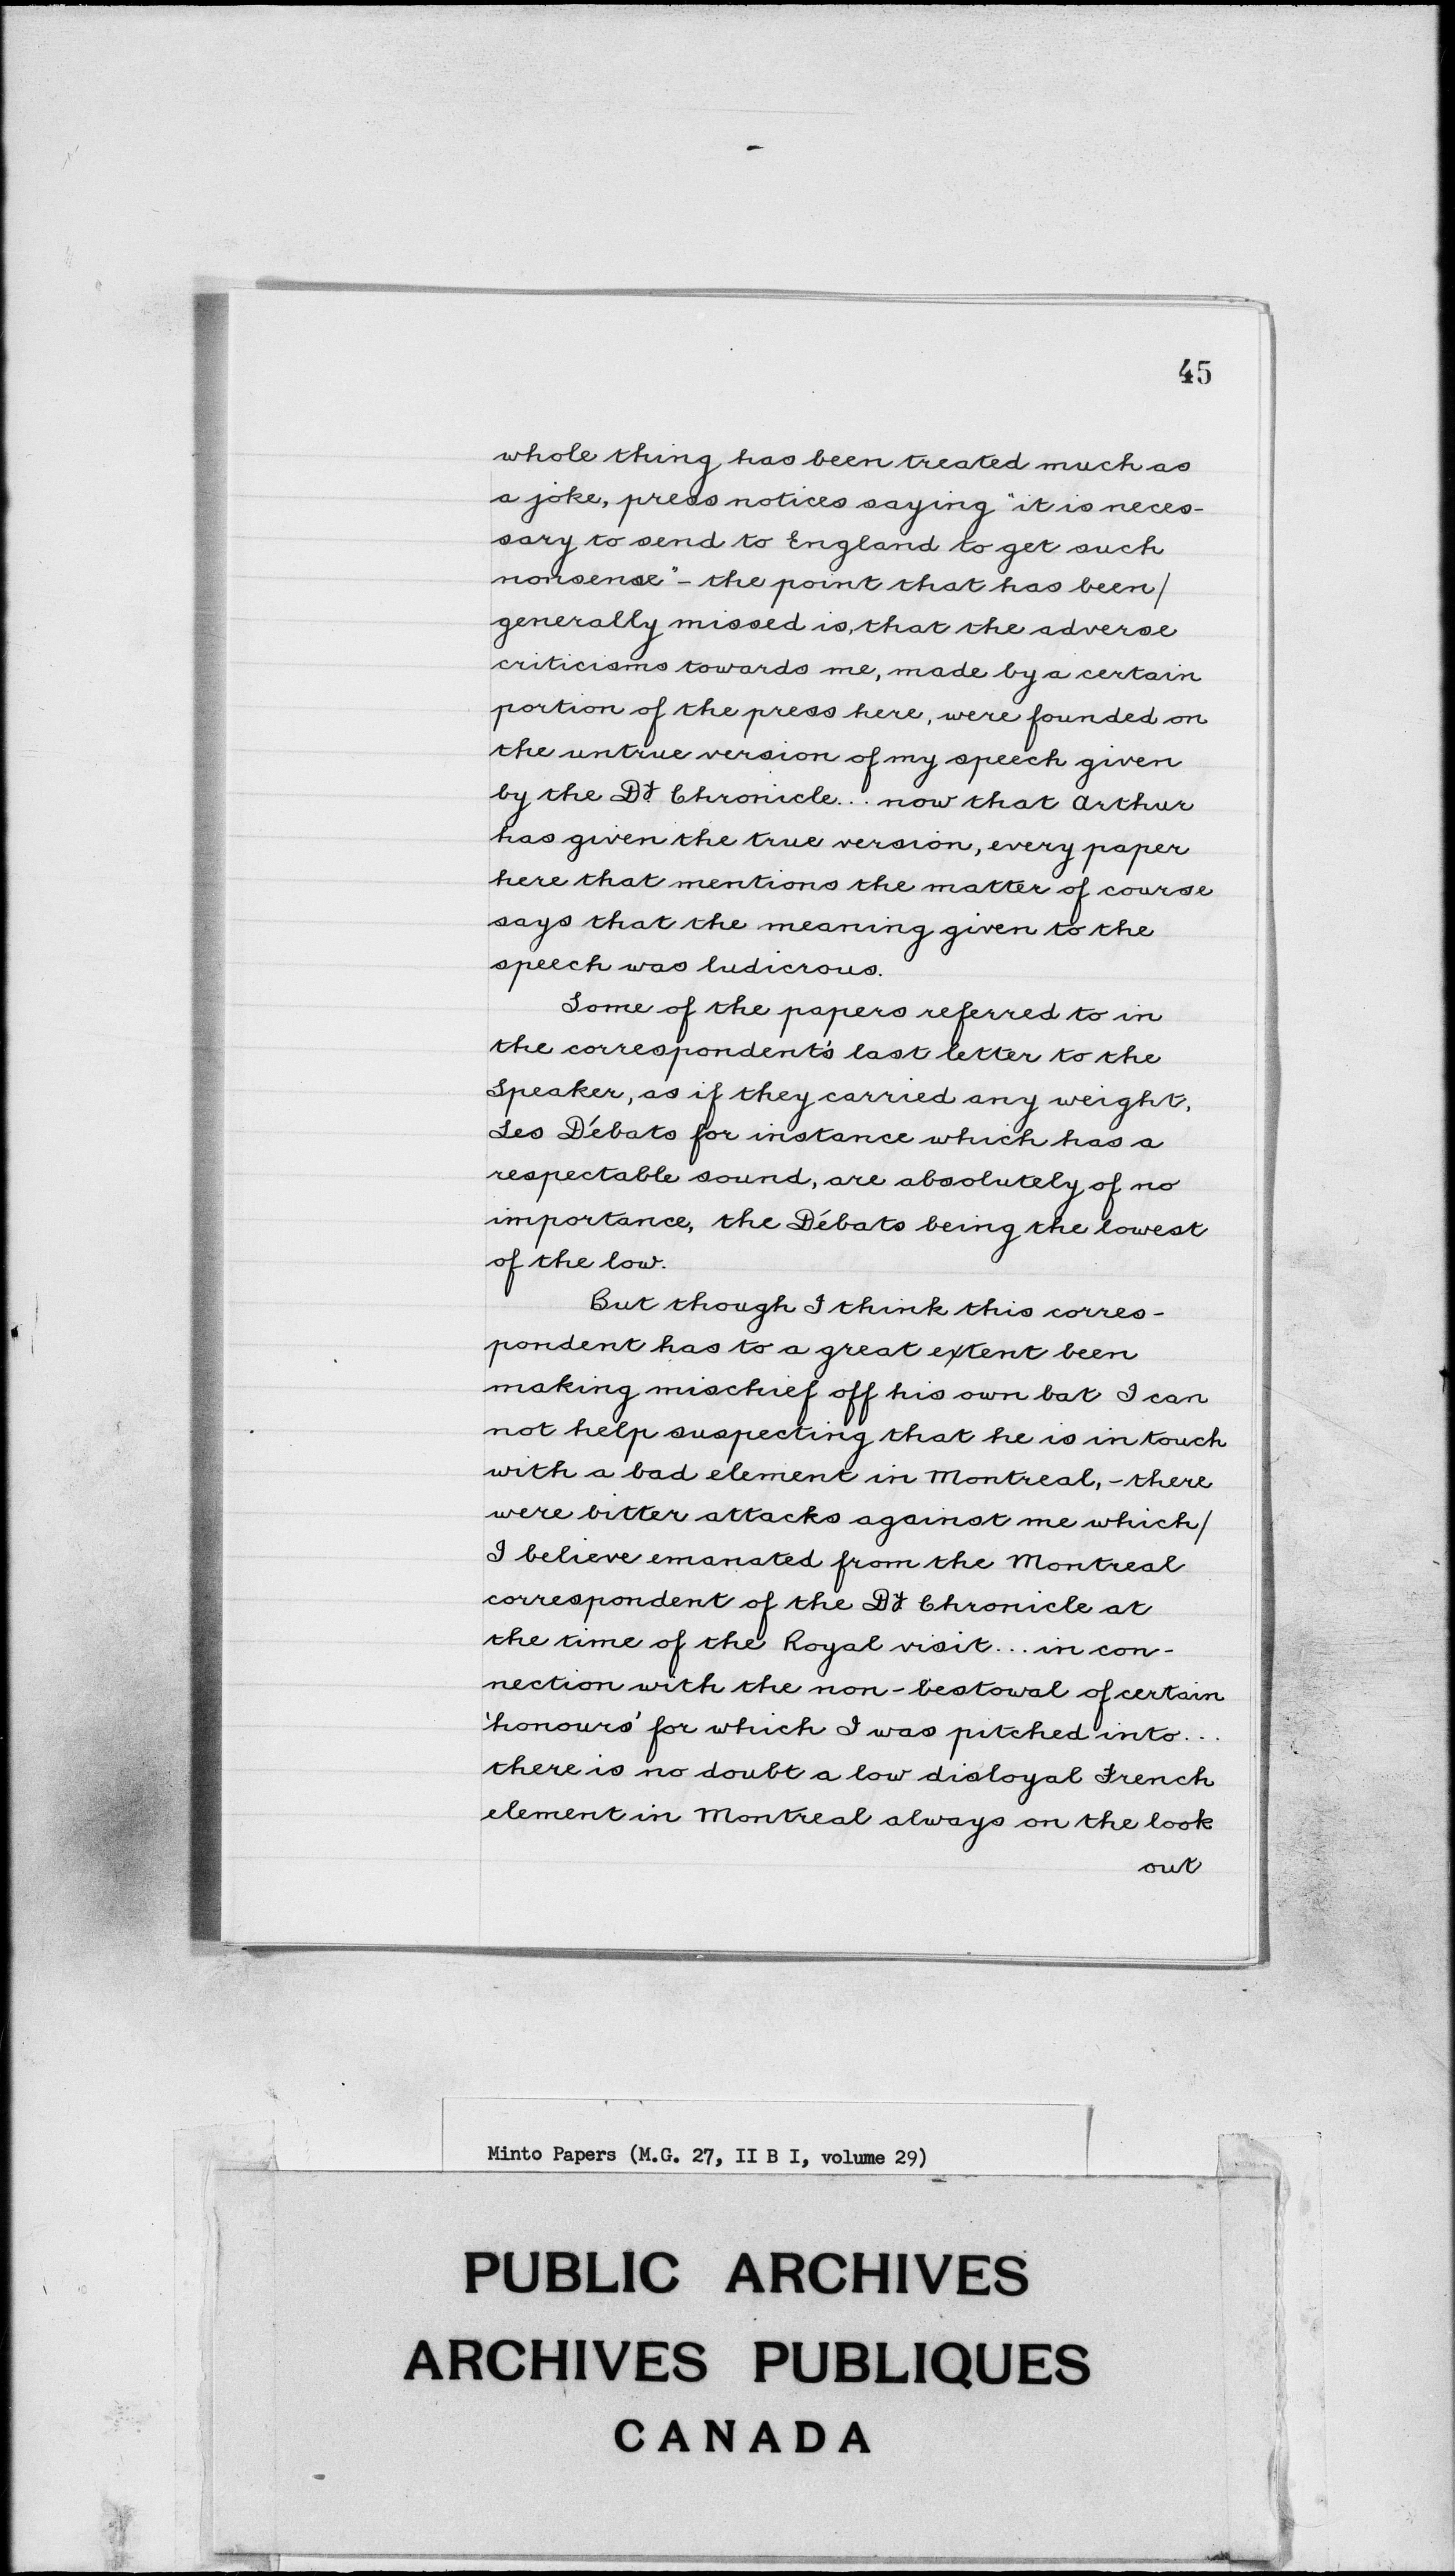 45
whole thing has been treated much as
a joke, press notices saying "it is neces-
sary to send to England to get such
nonsense" - the point that has been/
generally missed is, that the adverse
criticisms towards me, made by a certain
portion of the press here, were founded on
the untrue version of my speech given
by the Dy Chronicle... now that Arthur
has given the true version, every paper
here that mentions the matter of course
says that the meaning given to the
speech was ludicrous.
Some of the papers referred to in
the correspondent's last letter to the
Speaker, as if they carried any weight,
Les Débats for instance which has a
respectable sound, are absolutely of no
importance, the Débats being the lowest
of the low.
But though I think this corres-
pondent has to a great extent been
making mischief off his own bat I can
not help suspecting that he is in touch
with a bad element in Montreal, - there
were bitter attacks against me which/
I believe emanated from the Montreal
correspondent of the Dy Chronicle at
the time of the Royal visit... in con-
nection with the non-bestowal of certain
'honours' for which I was pitched into...
there is no doubt a low disloyal French
element in Montreal always on the look
out
Minto Papers (M.G. 27, II B I, volume 29)
PUBLIC ARCHIVES
ARCHIVES PUBLIQUES
CANADA